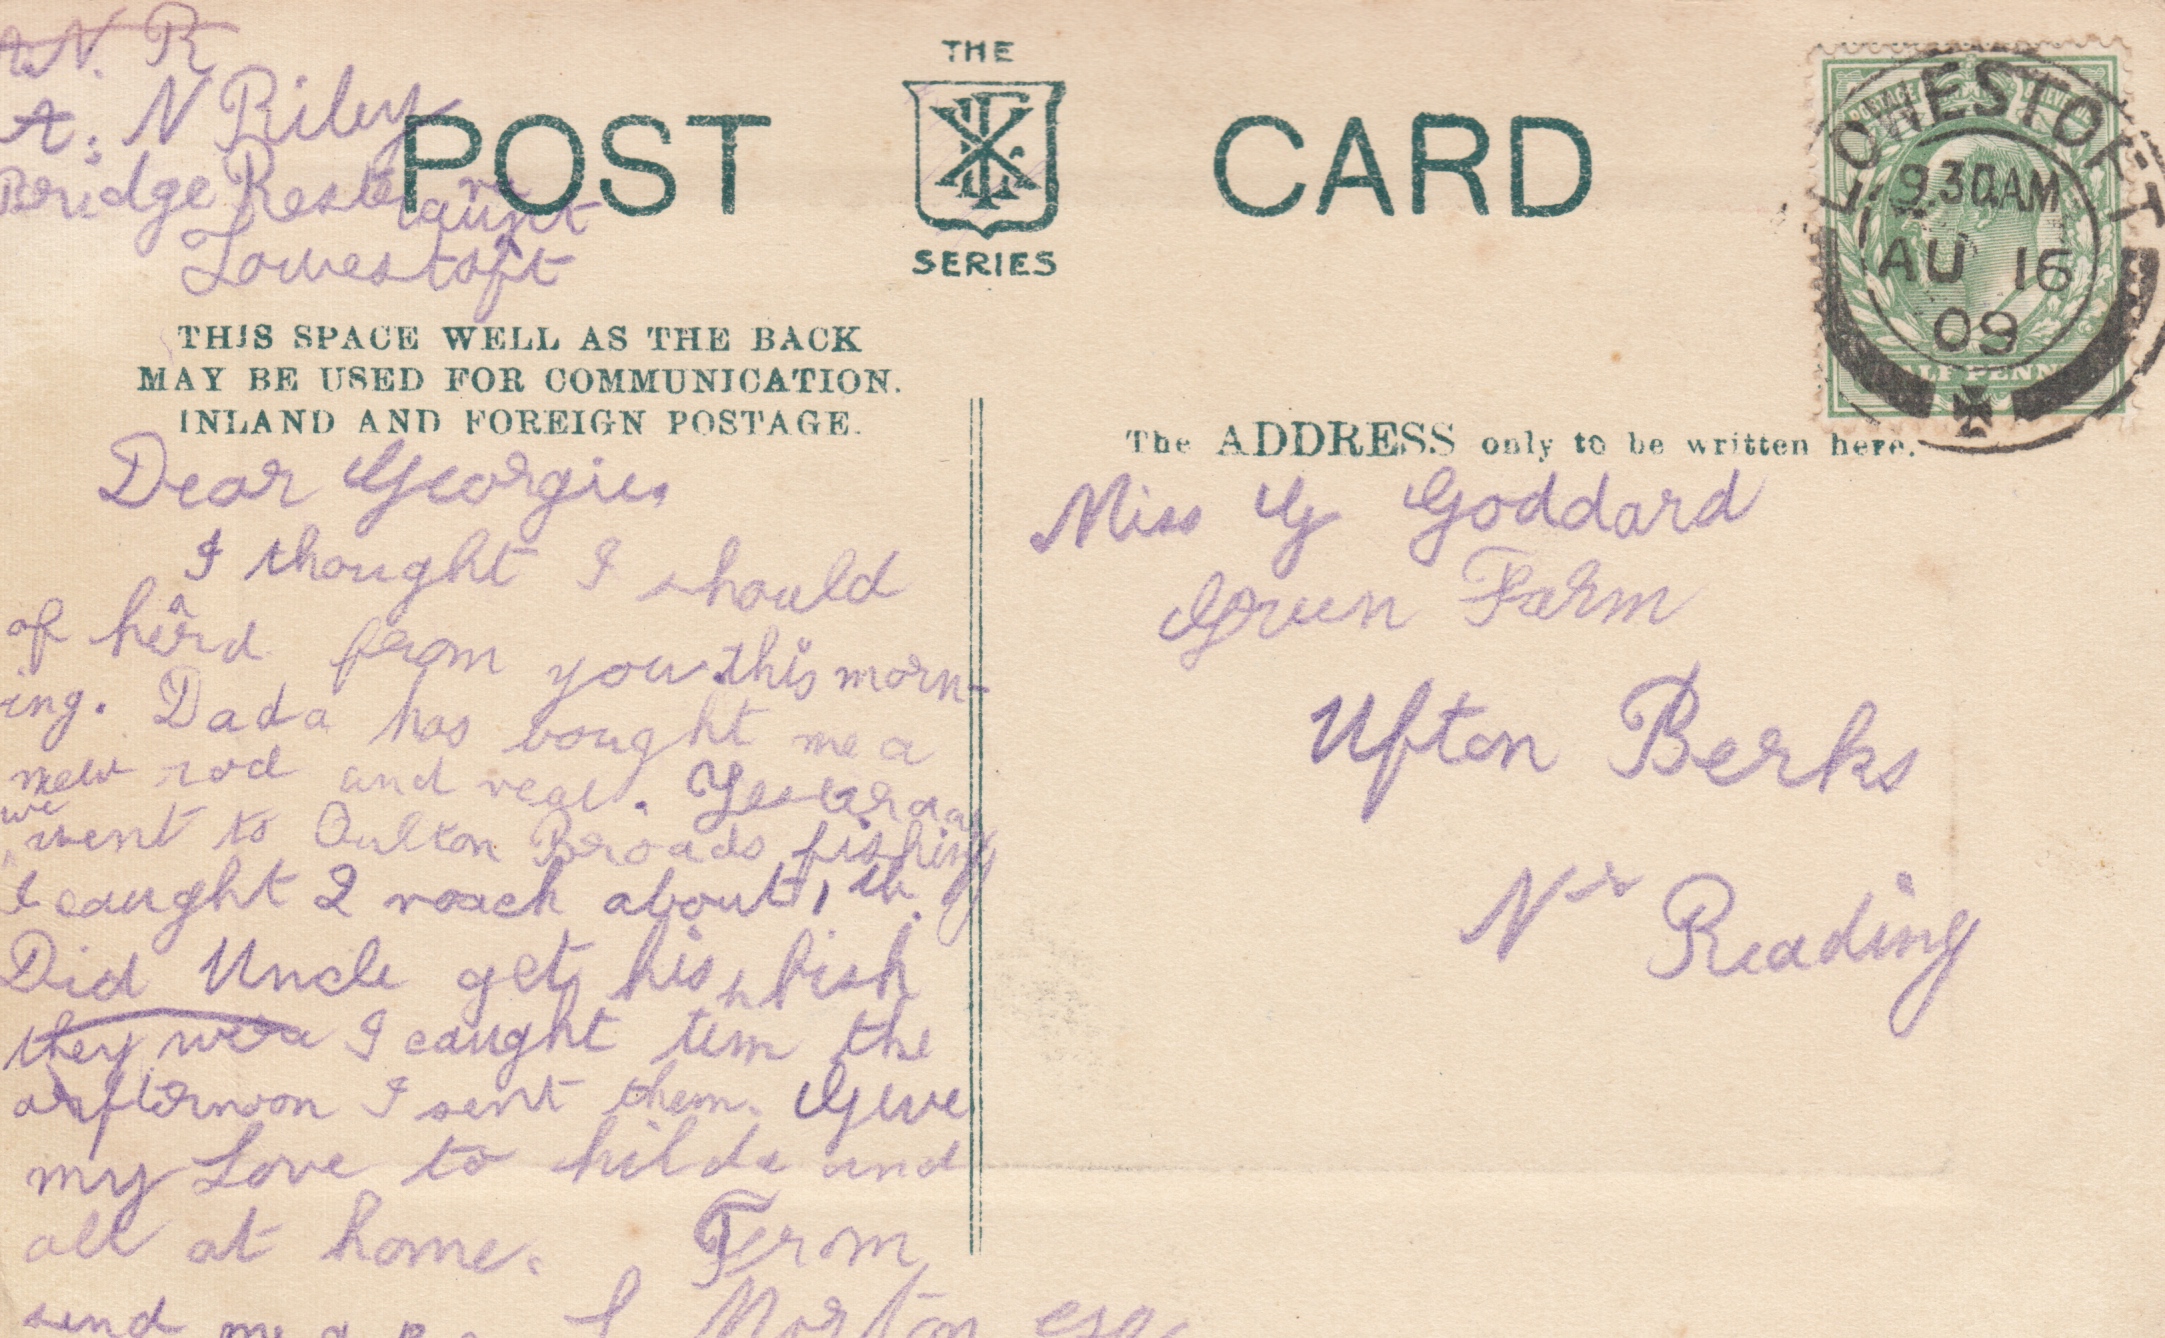 N. R
A. N Riley
Bridge Restaraunt
Lowestoft
THE
SERIES
POST CARD
LOWESTOFT
9.30AM
AU 16
09
THIS SPACE WELL AS THE BACK
MAY BE USED FOR COMMUNICATION.
INLAND AND FOREIGN POSTAGE.
Dear Georgie,
I thought I should
of heard from you this morn-
ing. Dada has bought me a
new rod and reel. Yesterday
we went to Oulton Broads fishing
I caught 2 roach about 1 lb.
Did Uncle get his fish
they were I caught tem the
afternoon I sent them. Give
my Love to hilda and
all at home. From
send me a P.C. Morton esq
The ADDRESS only to be written here.
Miss G Goddard
Green Farm
Ufton Berks
Nr Reading